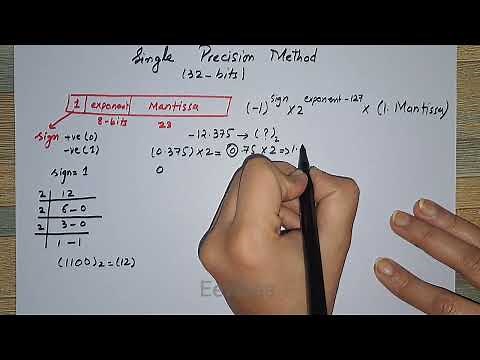 Single Precision Method
(32-bits)
1 exponent Mantissa
8-bits 23
(-1)^sign x 2^exponent-127 x (1. Mantissa)
sign +ve (0)
-ve (1)
-12.375 → (?)₂
(0.375) x 2 = 0.75 x 2 => 1.
sign = 1
0
2 12
2 6 - 0
2 3 - 0
1 - 1
(1100)₂ = (12)